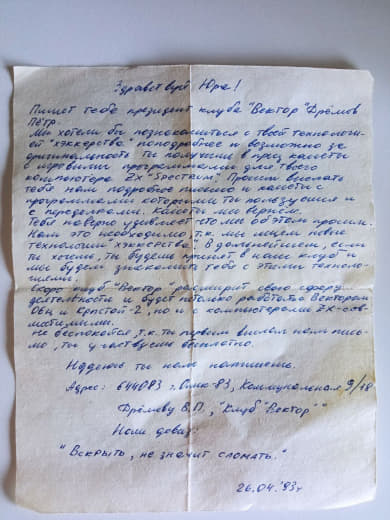 Здравствуй Юра!
Пишет тебе президент клуба "Вектор" Фрёмов
Пётр.
Мы хотели бы познакомиться с твоей технологи-
ей "хэккерства" поподробнее и возможно за
оригинальность ты получишь в приз кассеты
с игровыми программами для твоего
компьютера ZX "Spectrum". Просим выслать
тебя нам подробное письмо и кассеты с
программами которыми ты пользуешься и
с переделками. Кассеты мы вернём.
Тебя наверно удивляет что мы об этом просим.
Нам это необходимо т.к. мы ищем новые
технологии "хэккерства". В дальнейшем, если
ты хочешь, ты будешь принят в наш клуб и
мы будем знакомить тебя с этими техноло-
гиями.
Скоро клуб "Вектор" расширит свою сферу
деятельности и будет не только работать с Вектором
06ц и Кристой-2, но и с компьютерами ZX-сов-
местимыми.
Не беспокойся, т.к. ты первым выслал нам пись-
мо, ты участвуешь бесплатно.
Надеюсь ты нам напишешь.
Адрес: 644083 г. Омск-83, Коммунальная 9/18
Фрёмову В.П., "Клуб "Вектор""
Наш девиз:
"Вскрыть, не значит сломать."
26.04.'93г